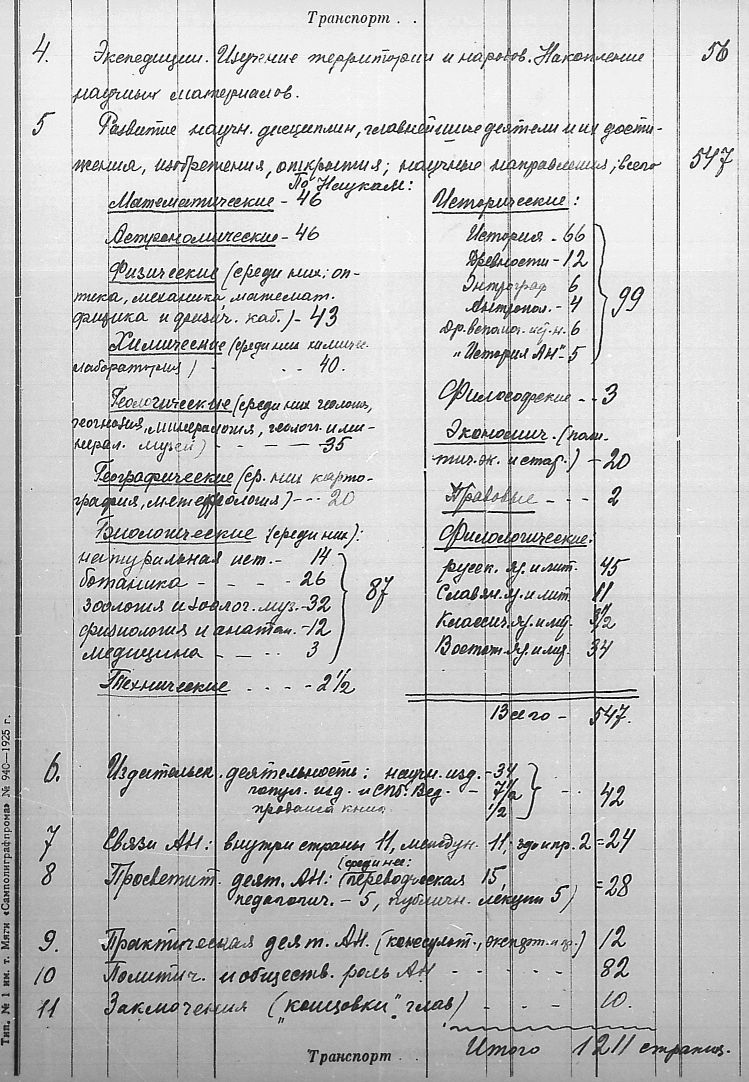 Транспорт . .
4. Экспедиции. Изучение территории и народов. Накопление 56
научных материалов.
5 Развитие научн. дисциплин, главнейшие деятели и их дости-
жения, изобретения, открытия; научные направления; всего 547
По Наукам:
Математические - 46
Астрономические - 46
Физические (среди них: оп-
тика, механика математ.
физика и физич. каб.) - 43
Химические (среди них химич.
лаборатория) - - - 40.
Геологические (среди них геология,
геогнозия, минералогия, геолог. и ми-
нерал. музей) - - - 35
Географические (ср. них карто-
графия, метеорология) - - - 20
Биологические (среди них):
натуральная ист. - 14
ботаника - - - - 26
зоология и зоолог. муз. - 32
физиология и анатом. - 12
медицина - - - - 3
87
Технические . . - - 2 1/2
Исторические :
История - 66
Древности - 12
Этнограф 6
Антропол. - 4
Др. вспомог. ист. н. 6
"История АН" - 5
99
Философские - - 3
Экономич. (поли-
тич. эк. и стат.) - 20
Правовые - - - 2
Филологические:
русск. яз. и лит. 45
Славян. яз. и лит. 11
Классич. яз. и лит.
Восточ. яз. и лит. 34
Всего - 547.
6. Издательск. деятельность: научн. изд. - 34
попул. изд. и СПб. Вед. - 7 1/2
продажа книг 1/2
42
7 Связи АН: внутри страны 11, междун. 11, др. 2 = 24
8 Просветит. деят. АН: (среди нее: переводческая 15,
педагогич. - 5, публичн. лекции 5) = 28
9. Практическая деят. АН. (консульт., эксперт. и др.) 12
10 Политич. и обществ. роль АН - - - - - 82
11 Заключения ("концовки" глав) - - - 10.
Итого 1211 страниц.
Транспорт . .
Тип. № 1 им. т. Мяги «Самполиграфпрома» № 940—1925 г.